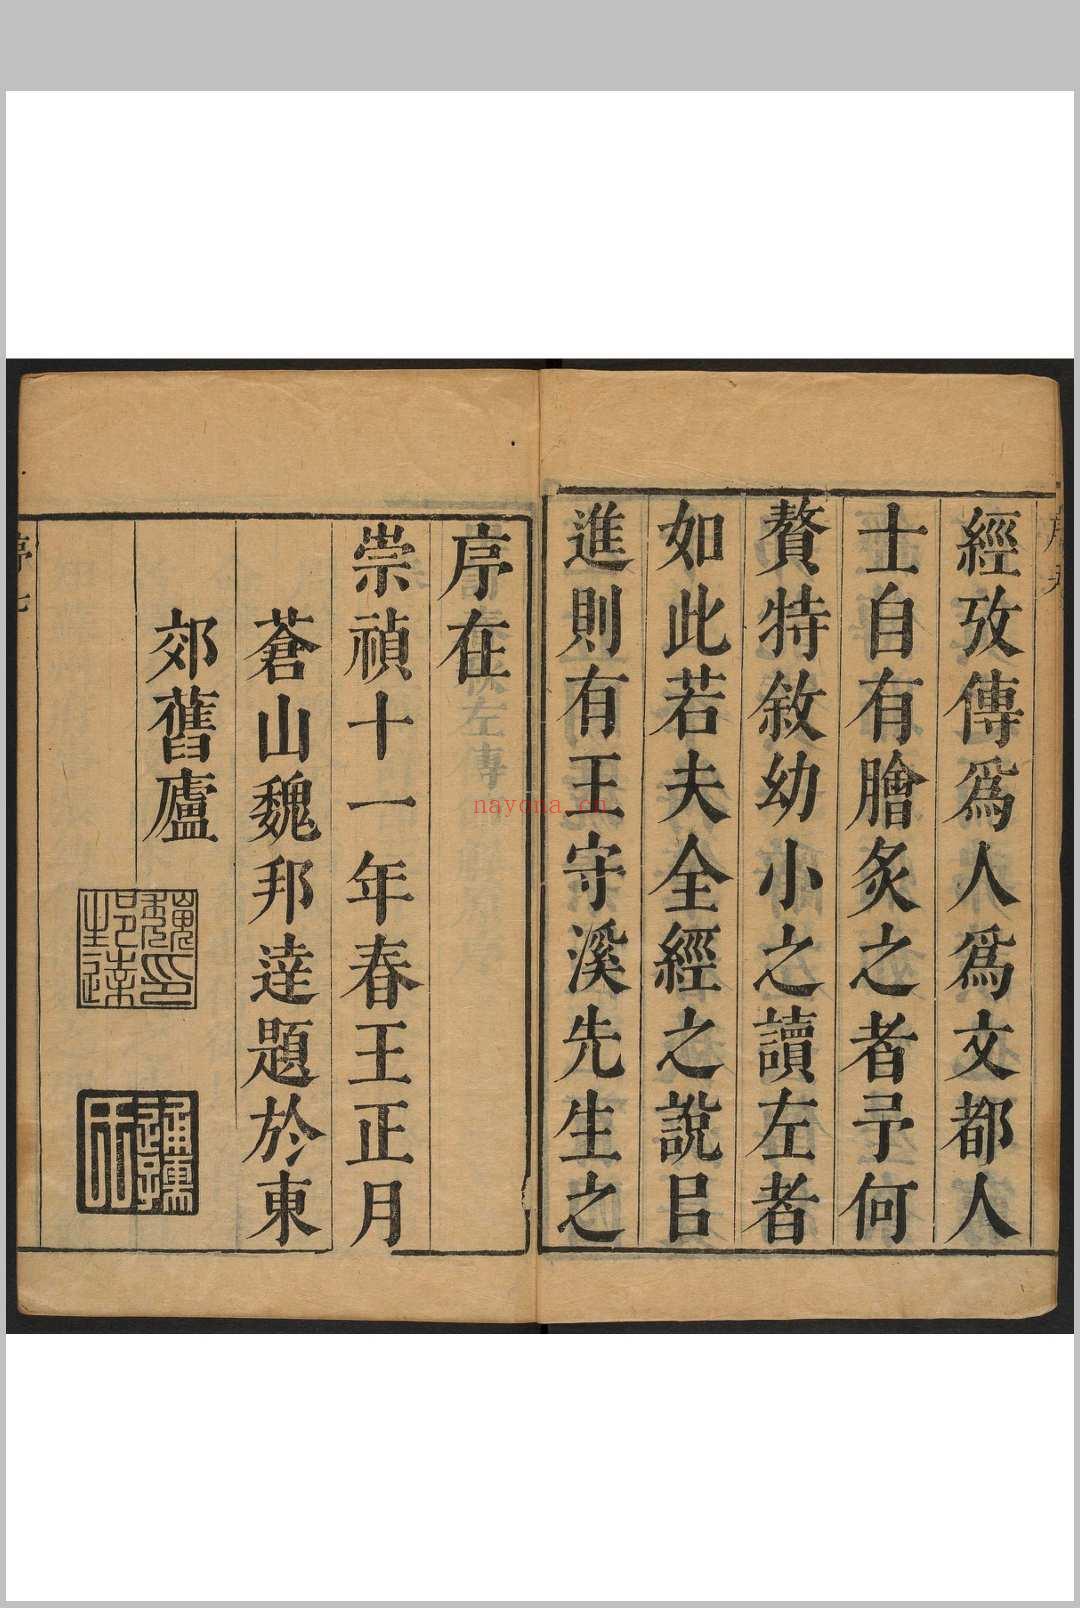 經攷傳爲人爲文都人
士自有膾炙之者予何
贅特敘幼小之讀左者
如此若夫全經之說㠯
進則有王守溪先生之
序在
崇禎十一年春王正月
蒼山魏邦達題於東
郊舊廬
魏邦達印
nayona.cn